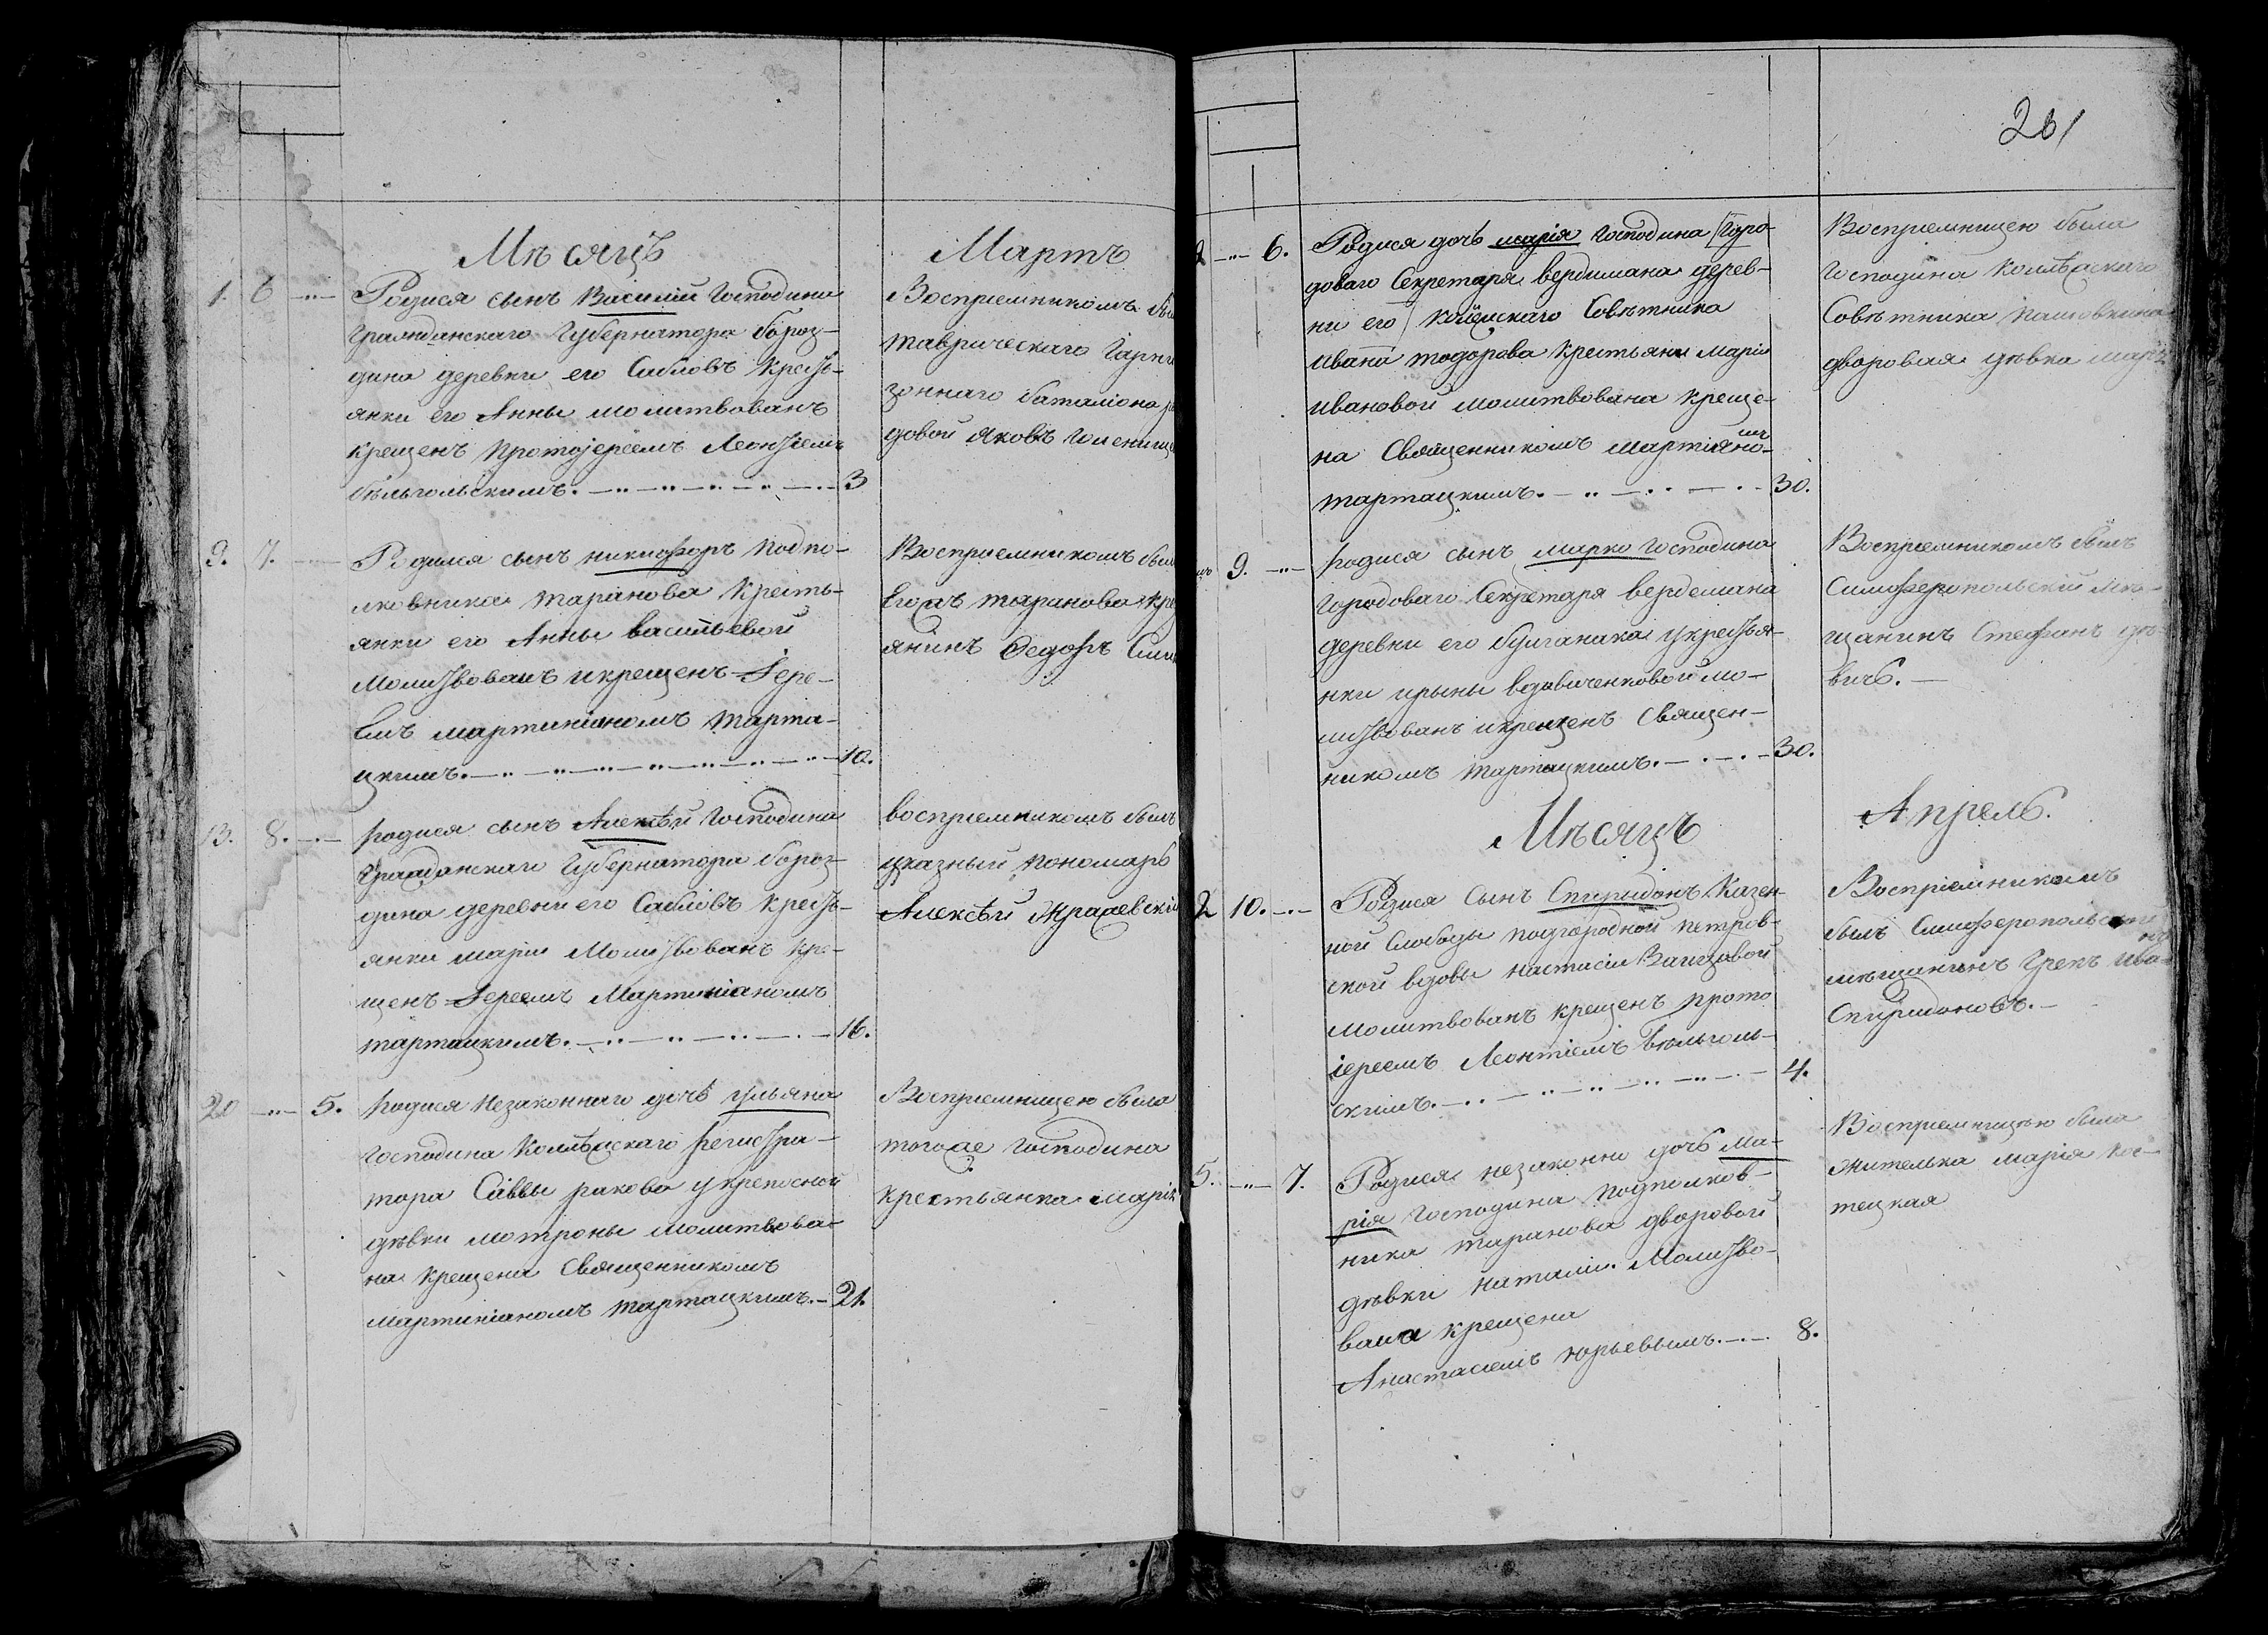 Мѣсяцъ
Мартъ
1. 6 —"—
Родися сынъ Василій Господина
Гражданскаго Губернатора бороз-
дина деревни его Сабловъ крестъ-
янки его Анны молитвованъ
крещенъ протоіереемъ Леонтіемъ
бѣльгольскимъ. 3
Восприемникомъ
таврическаго Гарни
зоннаго баталіона
довой Яковъ
9. 7. —"—
Родился сынъ никифоръ подпо-
лковника таранова кресть-
янки его Анны васильевой
молитвованъ и крещенъ Іере-
емъ мартиніаномъ тарта-
цкимъ. 10.
Восприемникомъ былъ
Егожъ таранова кре
янинъ Федоръ
13. 8. —"—
родися сынъ Алексѣй Господина
Гражданскаго Губернатора бороз-
дина деревни его Сабловъ крестъ-
янки маріи Молитвованъ кре-
щенъ Іереемъ Мартиніаномъ
тартацкимъ. 16.
восприемникомъ былъ
указный пономарь
Алексѣй Жражевскій
20 —"— 5.
родися незаконнаго дочь ульяна
Господина Коллѣжскаго регистра-
тора Саввы ракова укрепосной
дѣвки мотроны молитвова-
на крещена Священникомъ
мартиніаномъ тартацкимъ. 21.
Восприемницею была
тогоже Господина
крестьянка Марія
261
2 —"— 6.
Родися дочь марія Господина /Горо-
доваго Секретаря вердимана дерев-
ни его/ Совѣтника
ивана тодорова крестьянки маріи
ивановой молитвована креще-
на Священникомъ мартіяномъ
тартацкимъ. 30.
Восприемницею была
Господина Коллѣжскаго
Совѣтника
дворовая дѣвка марія
9. —"—
родися сынъ марко Господина
Городоваго Секретаря вердемана
деревни его булганака укрестья-
нки ирыны вдовиченковой мо-
литвованъ и крещенъ Священ-
никомъ тартацкимъ. 30.
Восприемникомъ былъ
Симферопольскій мѣ-
щанинъ Стефанъ
вичъ. —
Мѣсяцъ
Апрель.
2 10. —"—
Родися Сынъ Спиридонъ Казен-
ной Слободы подгородной петров-
ской вдовы настасіи
молитвованъ крещенъ прото
іереемъ Леонтіемъ бѣльголь-
скимъ. 4.
Воспріемникомъ
былъ Симферопольскій
мѣщининъ Грекъ Иванъ
Спиридоновъ. —
5. —"— 7.
Родися незаконно дочь Ма-
рія Господина подполков-
ника таранова дворовой
дѣвки наталіи. Молитво-
вана крещена
Анастасіемъ юрьевымъ. 8.
Восприемницею была
жителька марія Кос-
тецкая